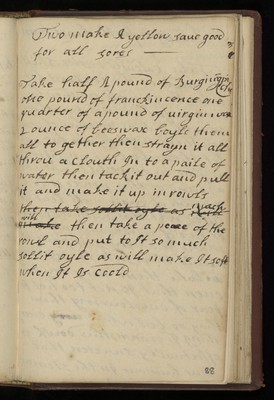 Two make A yellow save good
for all sores
Take half A pound of Burgin
one pound of franckincence one
quarter of a pound of virgin wax
2 ounce of beeswax boyle them
all to gether then strayn it all
throu a Clouth In to a paile of
water then tack it out and pull
it and make it up in rowls
then take sollit oyle as much
with
then take a peace of the
rowl and put to It so much
sollit oyle as will make It soft
when It Is Coold
88